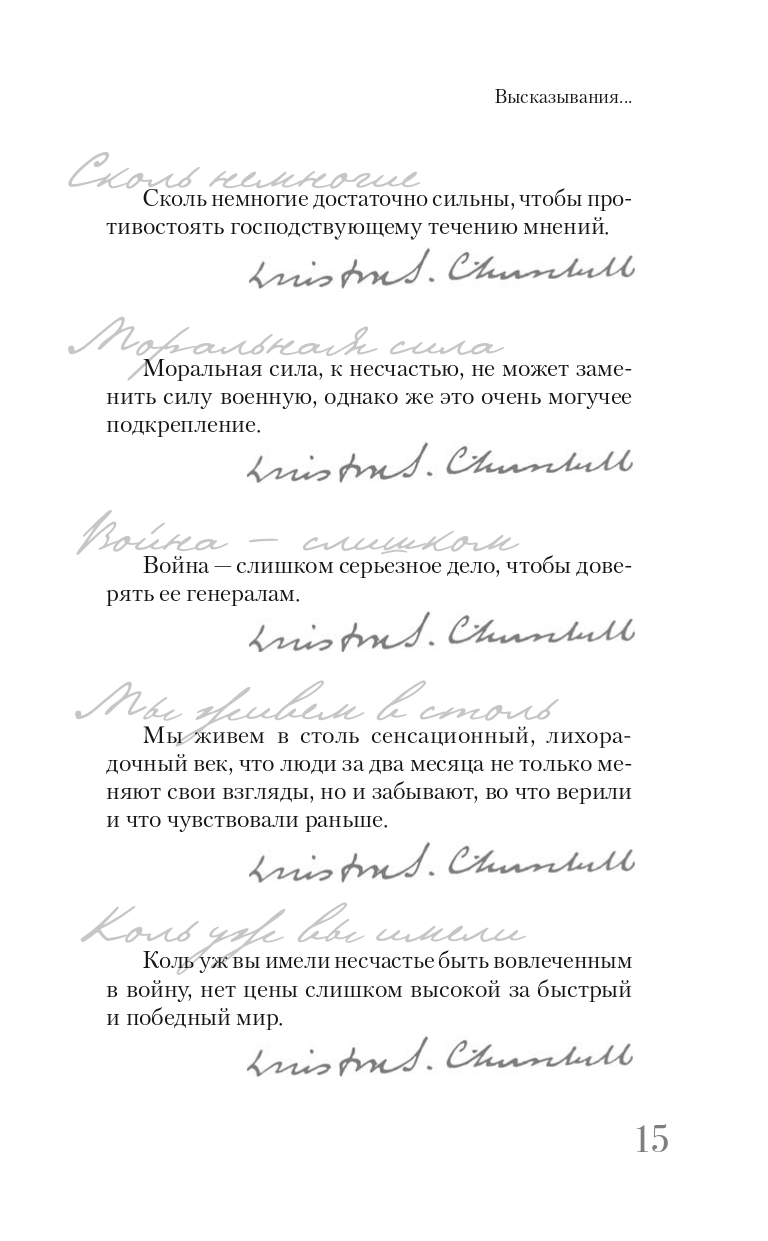 Высказывания...
Сколь немногие
Сколь немногие достаточно сильны, чтобы про-
тивостоять господствующему течению мнений.
Winston S. Churchill
Моральная сила
Моральная сила, к несчастью, не может заме-
нить силу военную, однако же это очень могучее
подкрепление.
Winston S. Churchill
Война — слишком
Война — слишком серьезное дело, чтобы дове-
рять ее генералам.
Winston S. Churchill
Мы живем в столь
Мы живем в столь сенсационный, лихора-
дочный век, что люди за два месяца не только ме-
няют свои взгляды, но и забывают, во что верили
и что чувствовали раньше.
Winston S. Churchill
Коль уж вы имели
Коль уж вы имели несчастье быть вовлеченным
в войну, нет цены слишком высокой за быстрый
и победный мир.
Winston S. Churchill
15